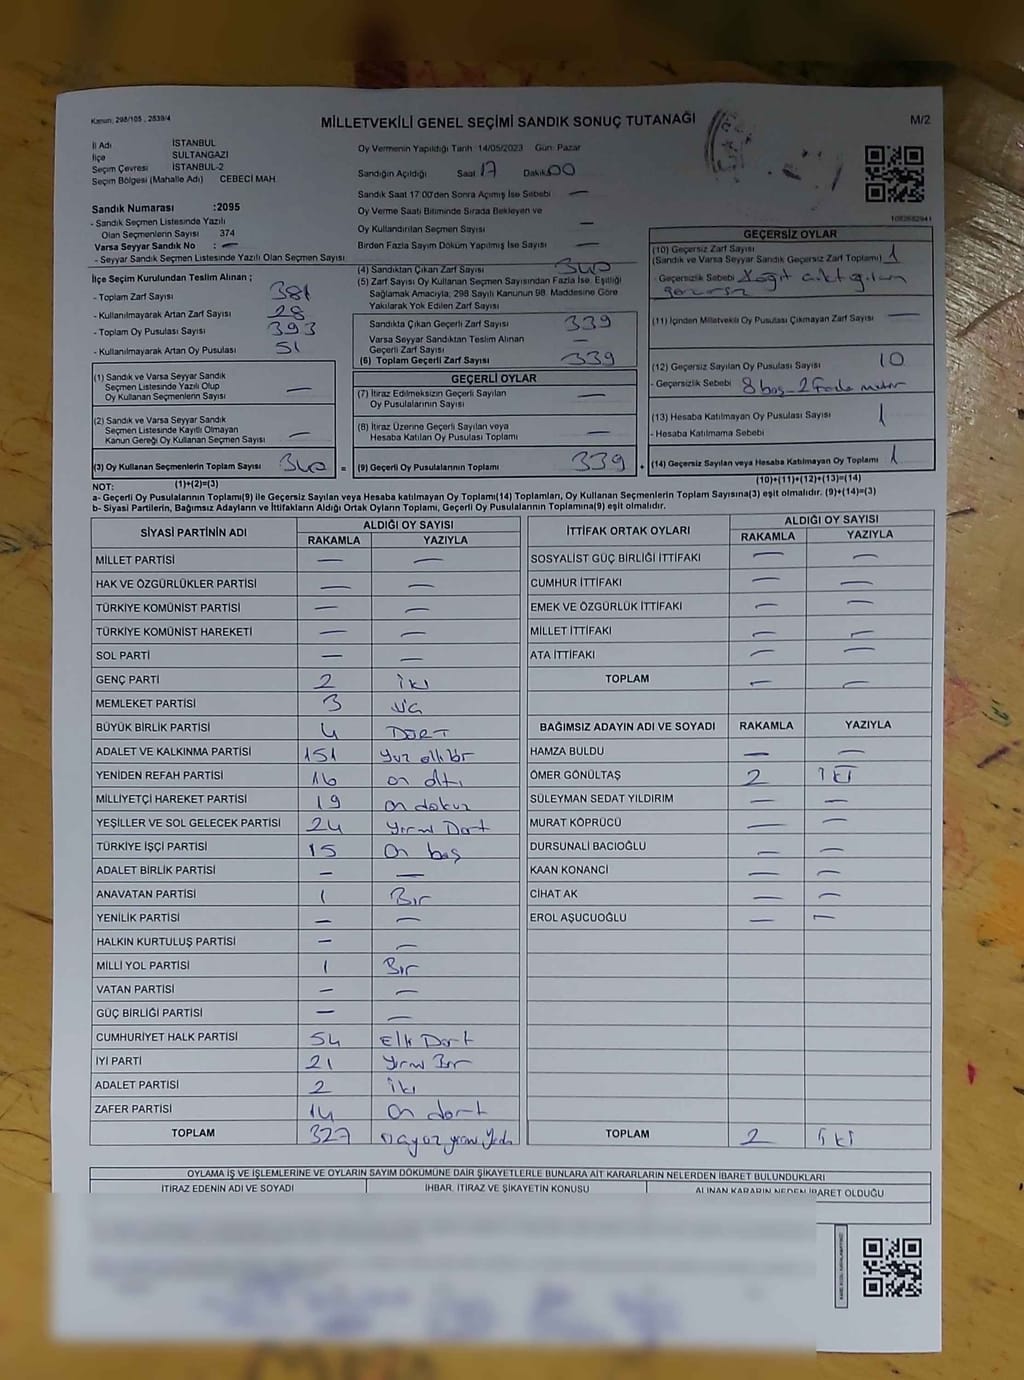 Kanun: 298/105 , 2839/4
MİLLETVEKİLİ GENEL SEÇİMİ SANDIK SONUÇ TUTANAĞI
M/2
İl Adı İSTANBUL
İlçe SULTANGAZİ
Seçim Çevresi İSTANBUL-2
Seçim Bölgesi (Mahalle Adı) CEBECİ MAH.
Sandık Numarası :2095
- Sandık Seçmen Listesinde Yazılı
Olan Seçmenlerin Sayısı 374
Varsa Seyyar Sandık No : —
- Seyyar Sandık Seçmen Listesinde Yazılı Olan Seçmen Sayısı
Oy Vermenin Yapıldığı Tarih :14/05/2023 Gün: Pazar
Sandığın Açıldığı Saat 17 Dakika 00
Sandık Saat 17:00'den Sonra Açımış İse Sebebi —
Oy Verme Saati Bitiminde Sırada Bekleyen ve
Oy Kullandırılan Seçmen Sayısı —
Birden Fazla Sayım Döküm Yapılmış İse Sayısı —
İlçe Seçim Kurulundan Teslim Alınan ;
- Toplam Zarf Sayısı 381
- Kullanılmayarak Artan Zarf Sayısı 28
- Toplam Oy Pusulası Sayısı 393
- Kullanılmayarak Artan Oy Pusulası 51
(1) Sandık ve Varsa Seyyar Sandık
Seçmen Listesinde Yazılı Olup
Oy Kullanan Seçmenlerin Sayısı —
(2) Sandık ve Varsa Seyyar Sandık
Seçmen Listesinde Kayıtlı Olmayan
Kanun Gereği Oy Kullanan Seçmen Sayısı —
(3) Oy Kullanan Seçmenlerin Toplam Sayısı 340 =
(1)+(2)=(3)
(4) Sandıktan Çıkan Zarf Sayısı 340
(5) Zarf Sayısı Oy Kullanan Seçmen Sayısından Fazla İse, Eşitliği
Sağlamak Amacıyla, 298 Sayılı Kanunun 98. Maddesine Göre
Yakılarak Yok Edilen Zarf Sayısı
Sandıkta Çıkan Geçerli Zarf Sayısı 339
Varsa Seyyar Sandıktan Teslim Alınan
Geçerli Zarf Sayısı —
(6) Toplam Geçerli Zarf Sayısı 339
GEÇERLİ OYLAR
(7) İtiraz Edilmeksizin Geçerli Sayılan
Oy Pusulalarının Sayısı —
(8) İtiraz Üzerine Geçerli Sayılan veya
Hesaba Katılan Oy Pusulası Toplamı —
(9) Geçerli Oy Pusulalarının Toplamı 339 +
1082682941
GEÇERSİZ OYLAR
(10) Geçersiz Zarf Sayısı
(Sandık ve Varsa Seyyar Sandık Geçersiz Zarf Toplamı) 1
- Geçersizlik Sebebi
(11) İçinden Milletvekili Oy Pusulası Çıkmayan Zarf Sayısı —
(12) Geçersiz Sayılan Oy Pusulası Sayısı 10
- Geçersizlik Sebebi 8 boş - 2 Fazla mühür
(13) Hesaba Katılmayan Oy Pusulası Sayısı 1
- Hesaba Katılmama Sebebi
(14) Geçersiz Sayılan veya Hesaba Katılmayan Oy Toplamı 1
(10)+(11)+(12)+(13)=(14)
NOT:
a- Geçerli Oy Pusulalarının Toplamı(9) ile Geçersiz Sayılan veya Hesaba katılmayan Oy Toplamı(14) Toplamları, Oy Kullanan Seçmenlerin Toplam Sayısına(3) eşit olmalıdır. (9)+(14)=(3)
b- Siyasi Partilerin, Bağımsız Adayların ve İttifakların Aldığı Ortak Oyların Toplamı, Geçerli Oy Pusulalarının Toplamına(9) eşit olmalıdır.
SİYASİ PARTİNİN ADI ALDIĞI OY SAYISI
RAKAMLA YAZIYLA
MİLLET PARTİSİ — —
HAK VE ÖZGÜRLÜKLER PARTİSİ — —
TÜRKİYE KOMÜNİST PARTİSİ — —
TÜRKİYE KOMÜNİST HAREKETİ — —
SOL PARTİ — —
GENÇ PARTİ 2 iki
MEMLEKET PARTİSİ 3 üç
BÜYÜK BİRLİK PARTİSİ 4 DÖRT
ADALET VE KALKINMA PARTİSİ 151 Yüz elli bir
YENİDEN REFAH PARTİSİ 16 on altı
MİLLİYETÇİ HAREKET PARTİSİ 19 on dokuz
YEŞİLLER VE SOL GELECEK PARTİSİ 24 Yirmi Dört
TÜRKİYE İŞÇİ PARTİSİ 15 On beş
ADALET BİRLİK PARTİSİ — —
ANAVATAN PARTİSİ 1 Bir
YENİLİK PARTİSİ — —
HALKIN KURTULUŞ PARTİSİ — —
MİLLİ YOL PARTİSİ 1 Bir
VATAN PARTİSİ — —
GÜÇ BİRLİĞİ PARTİSİ — —
CUMHURİYET HALK PARTİSİ 54 Elli Dört
İYİ PARTİ 21 Yirmi Bir
ADALET PARTİSİ 2 iki
ZAFER PARTİSİ 14 On dört
TOPLAM 327 üçyüz yirmi yedi
İTTİFAK ORTAK OYLARI ALDIĞI OY SAYISI
RAKAMLA YAZIYLA
SOSYALİST GÜÇ BİRLİĞİ İTTİFAKI — —
CUMHUR İTTİFAKI — —
EMEK VE ÖZGÜRLÜK İTTİFAKI — —
MİLLET İTTİFAKI — —
ATA İTTİFAKI — —
TOPLAM — —
BAĞIMSIZ ADAYIN ADI VE SOYADI RAKAMLA YAZIYLA
HAMZA BULDU — —
ÖMER GÖNÜLTAŞ 2 İKİ
SÜLEYMAN SEDAT YILDIRIM — —
MURAT KÖPRÜCÜ — —
DURSUNALİ BACIOĞLU — —
KAAN KONANCİ — —
CİHAT AK — —
EROL AŞUCUOĞLU — —
TOPLAM 2 İki
OYLAMA İŞ VE İŞLEMLERİNE VE OYLARIN SAYIM DÖKÜMÜNE DAİR ŞİKAYETLERLE BUNLARA AİT KARARLARIN NELERDEN İBARET BULUNDUKLARI
İTİRAZ EDENİN ADI VE SOYADI
İHBAR, İTİRAZ VE ŞİKAYETİN KONUSU
ALINAN KARARIN NEDEN İBARET OLDUĞU